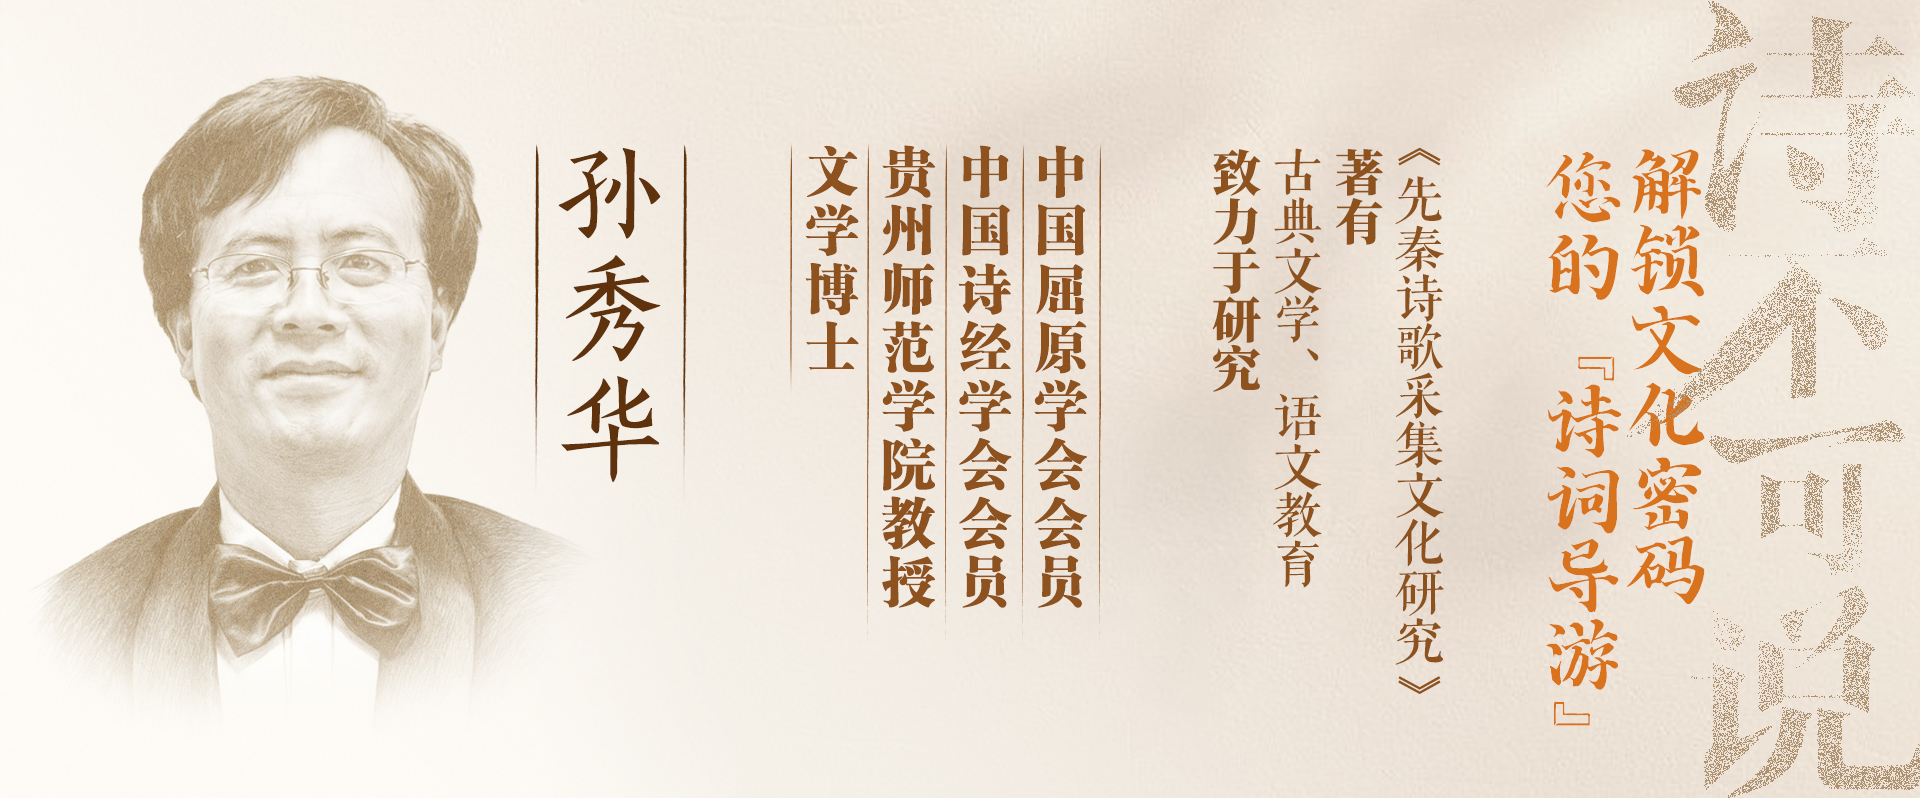 诗不可说
解锁文化密码
您的『诗词导游』
《先秦诗歌采集文化研究》
著有
古典文学、语文教育
致力于研究
中国屈原学会会员
中国诗经学会会员
贵州师范学院教授
文学博士
孙秀华